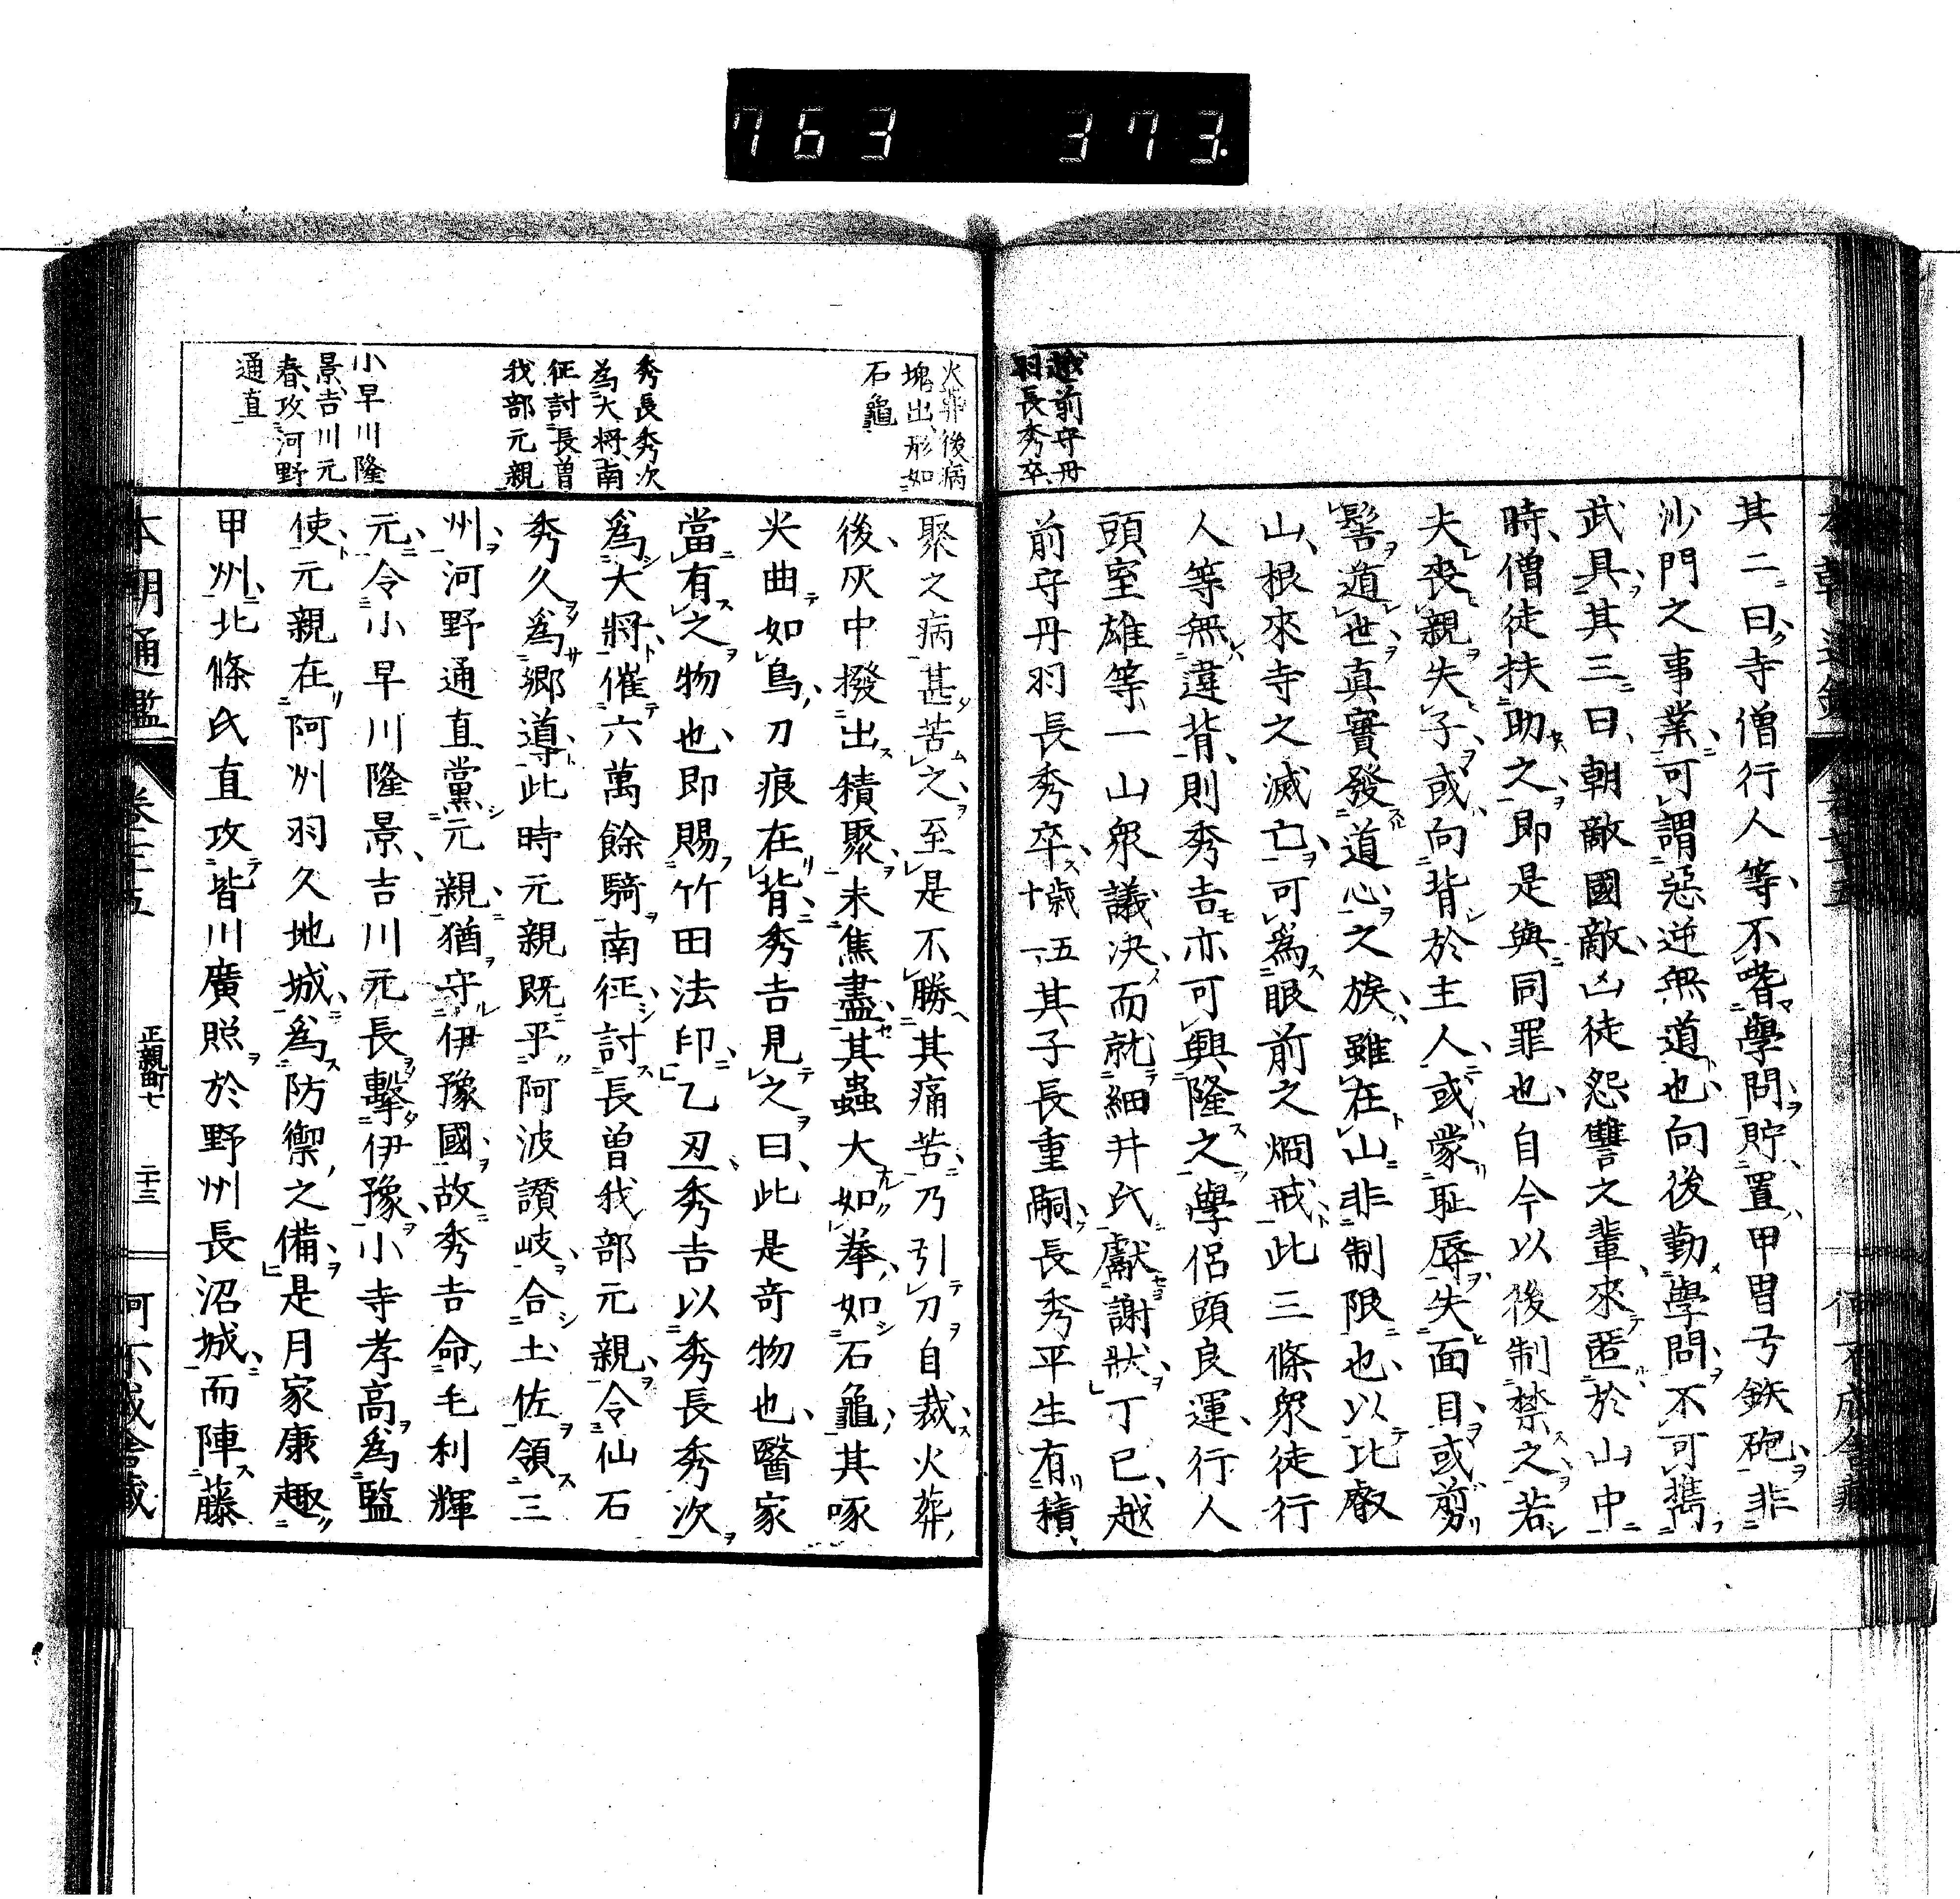 763 373.
越前守丹
羽長秀卒
其二曰寺僧行人等不嗜學問貯置甲冑弓鉄砲非
沙門之事業可謂惡逆無道也向後勤學問不可携
武具其三曰朝敵國敵凶徒怨讐之輩來匿於山中
時僧徒扶助之即是與同罪也自今以後制禁之若
夫喪親失子或向背於主人或蒙耻辱失面目或剪
髻遁世真實發道心之族雖在山非制限也以比叡
山根來寺之滅亡可爲眼前之烱戒此三條衆徒行
人等無違背則秀吉亦可興隆之學侶頭良運行人
頭室雄等一山衆議決而就細井氏獻謝狀丁巳越
前守丹羽長秀卒歳五十一其子長重嗣長秀平生有積
火葬後病
塊出形如
石龜
秀長秀次
為大将南
征討長曽
我部元親
小早川隆
景吉川元
春攻河野
通直
聚之病甚苦之至是不勝其痛苦乃引刀自裁火葬
後灰中撥出積聚未焦盡其蟲大如拳如石龜其啄
尖曲如鳥刀痕在背秀吉見之曰此是奇物也醫家
當有之物也即賜竹田法印乙丑秀吉以秀長秀次
爲大將催六萬餘騎南征討長曽我部元親令仙石
秀久爲鄉導此時元親既平阿波讃岐合土佐領三
州河野通直黨元親猶守伊豫國故秀吉命毛利輝
元令小早川隆景吉川元長擊伊豫小寺孝高爲監
使元親在阿州羽久地城爲防禦之備是月家康趣
甲州北條氏直攻皆川廣照於野州長沼城而陣藤
本朝通鑑
正親町七
二十三